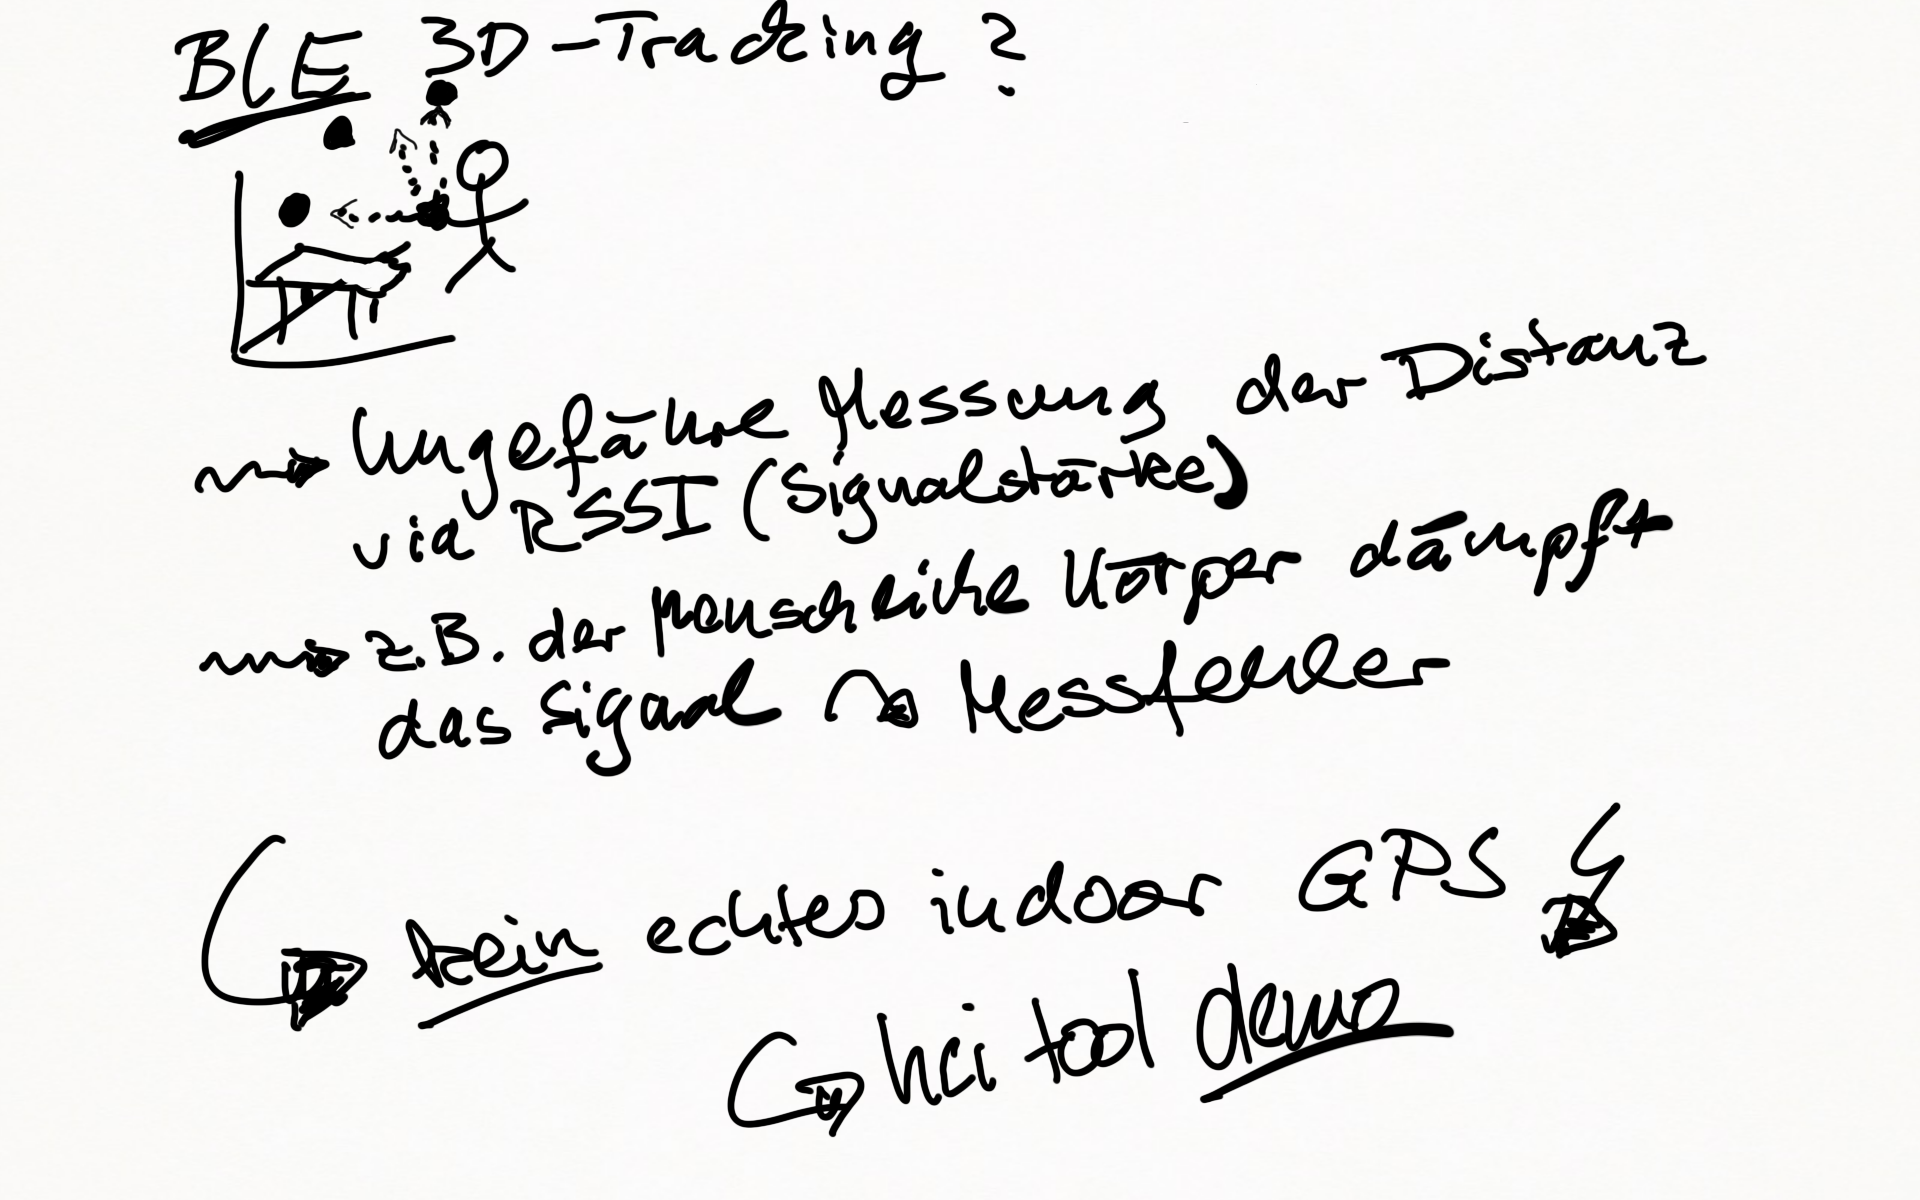 BLE 3D-Tracking?
Ungefähre Messung der Distanz
via RSSI (Signalstärke)
z.B. der menschliche Körper dämpft
das Signal Messfehler
kein echtes indoor GPS
hci tool demo